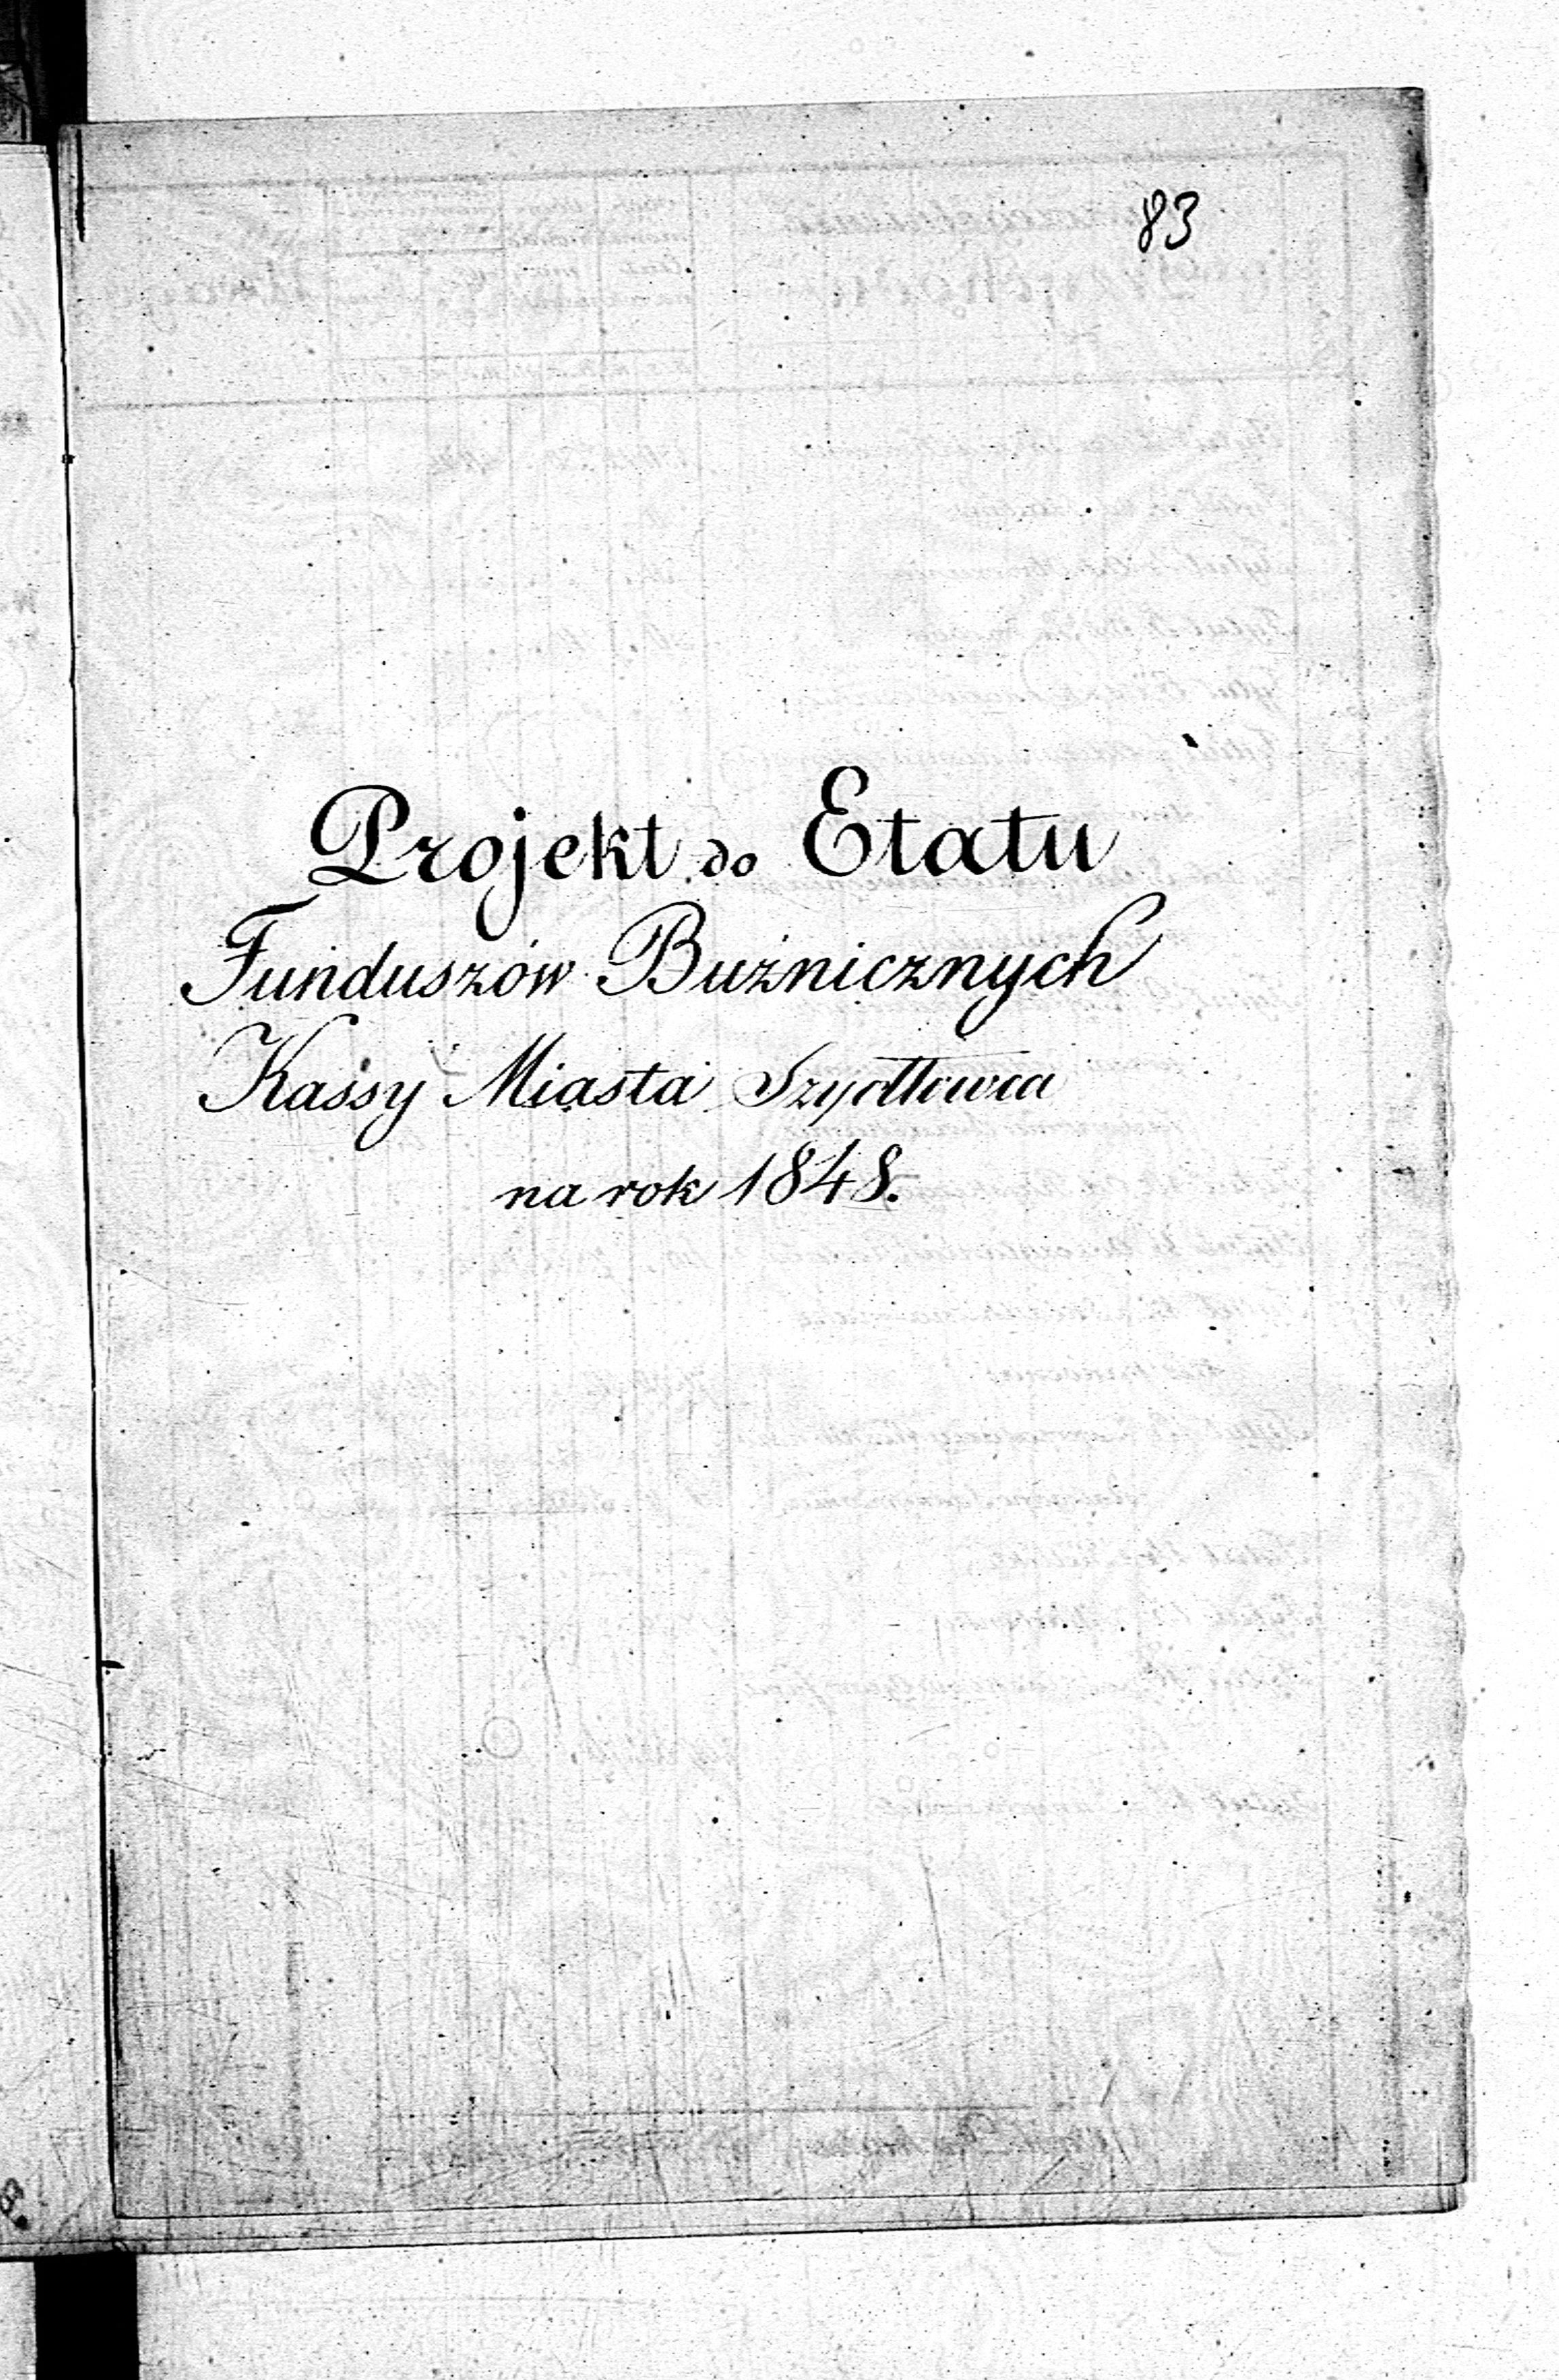 83
Projekt do Etatu
Funduszów Bużnicznych
Kassy Miasta Szydłowca
na rok 1848.